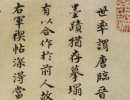 世率謂唐臨晉
墨蹟猶存摹搨
有以合作於前人故
右軍禊帖深得當